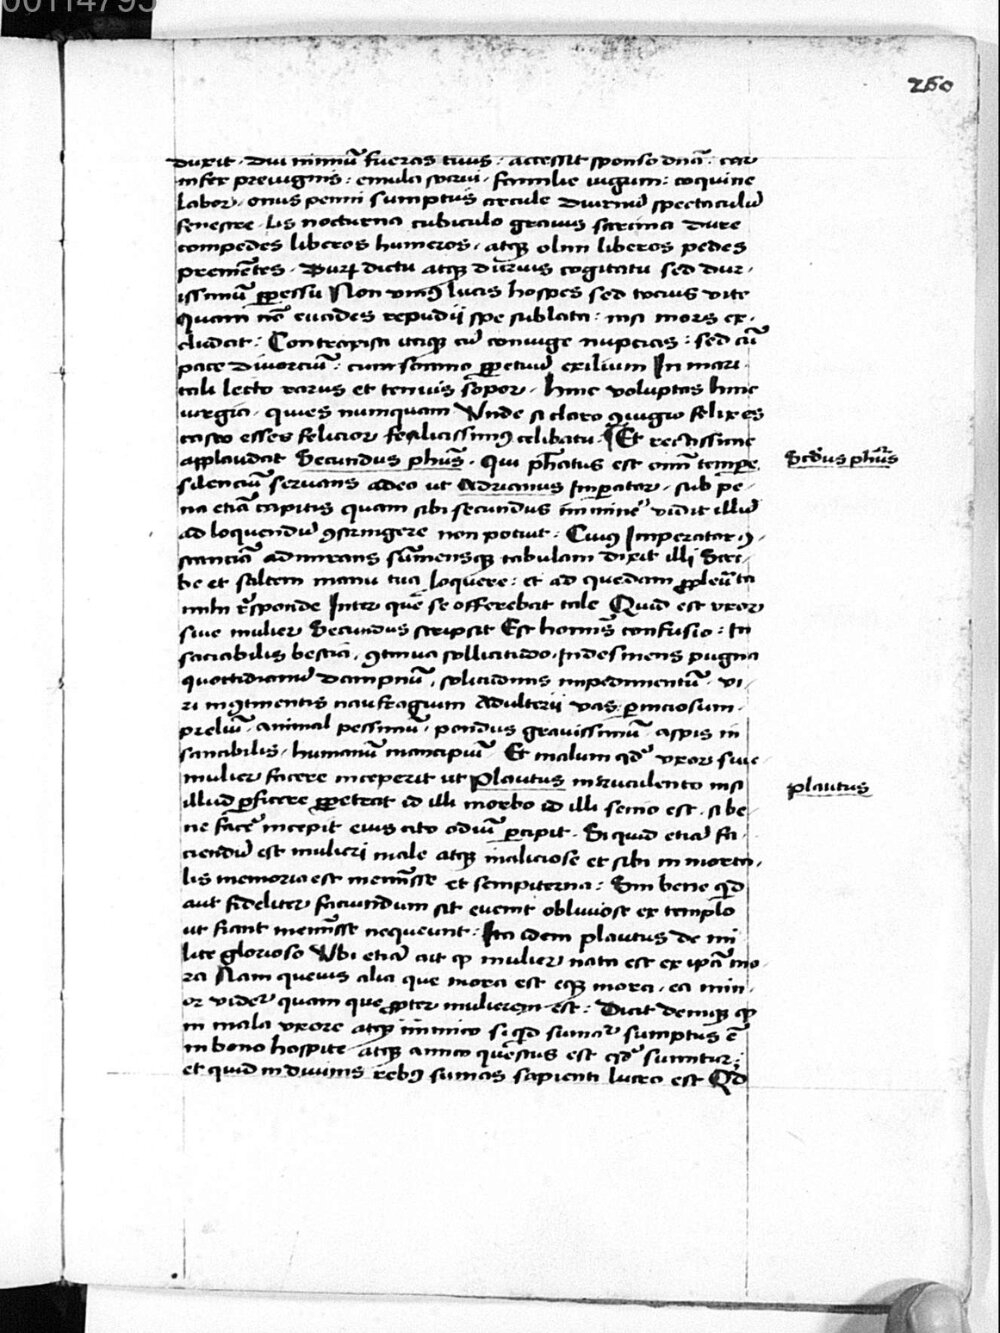 00114795
260
duxit · Dui nimiū fueras tuus : accessit sponso dnā : car
nifex prevignis : emula socrui · familie iugum : coquine
labor · onus penni sumptus arcule diurnū spectaculū
fenestre · lis nocturna cubiculo gravis sarcina dure
compedes liberos humeros · atqȝ olim liberos pedes
premētes · Durū dictu atqȝ durius cogitatu sed dur ·
issimū ꝑpessu Non unius lucis hospes sed tocius vite
Quam nec euades repudii spe sublata : nisi mors ex ·
cludat : Contraxisti itaqȝ cū coniuge nuptias : sed cū
pace divorciū : cum somno ꝑpetuū exilium In mari
tali lecto rarus et tenuis sopor · hinc voluptas hinc
iurgia · quies numquam Unde si claro ꝯiugio felix es
casto esses felicior felicissimꝯ celibatu · ¶ Et rectissime
applaudat Secundus phūs · Qui ph̄atus est omī tempe
silenciū servans adeo ut Adrianus Imperator · sub pe ·
na etiā capitis quam sibi secundus imminē vidit illū
ad loquendū ꝯstringere non potuit : Cuiꝯ Imperator ꝯ ·
stanciā admirans sumensqȝ tabulam dixit illi Scri ·
be et saltem manu tua loquere : et ad quedam ꝓpleūta
mihi rn̄sponde Inter que se offerebat tale Quid est uxor
sive mulier Secundus scripsit Est hominis confusio : In
saciabilis bestia · ꝯtinua sollicitudo · Indesinens pugna
quottidianū dampnū · solicitudinis impedimentū · vi ·
ri inꝯtinentis naufragium Adulterii vas ꝑniciosum ·
preliū · animal pessimū · pondus gravissimū · aspis in
sanabilis · humanū mancipiū · Et malum qd̄ uxor sive
mulier facere inceperit ut Plautus in truculento nisi
illud ꝑficere ꝑpetrat id illi morbo id illi senio est · si be ·
ne facē incepit eius cito odiū ꝑcipit · Si quid etiā fa ·
ciendū est mulieri male atqȝ maliciose et sibi immorta ·
lis memoria est meminisse et sempiterna : Sin bene qd̄
aut fideliter faciundum sit evenit obliviose ex templo
ut fiant meminisse nequeunt : Ita idem plautus de mi
lite glorioso Ubi etiā ait qp mulier nata est ex ipā mo ·
ra Nam quevis alia que mora est eqȝ mora · ea min ·
or videt quam que ꝓpter mulierem est : Dicit deniqȝ qp
in mala uxore atqȝ inimico si qd̄ sumat̄ sumptus ē
in bono hospite atqȝ amico questus est qd̄ sumitur :
et quid in divinis rebꝯ sumas sapienti lucro est Qd̄
Secūdus phūs
plautus